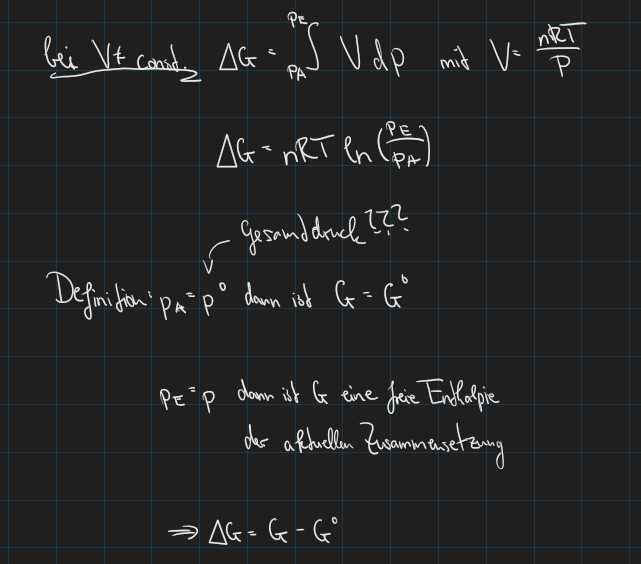 bei V≠ const. ΔG = ∫_{PA}^{PE} V dp mit V = nRT/P
ΔG = nRT ln (PE/PA)
Gesamtdruck ???
Definition: PA = p° dann ist G = G°
PE = p dann ist G eine freie Enthalpie
der aktuellen Zusammensetzung
⇒ ΔG = G - G°